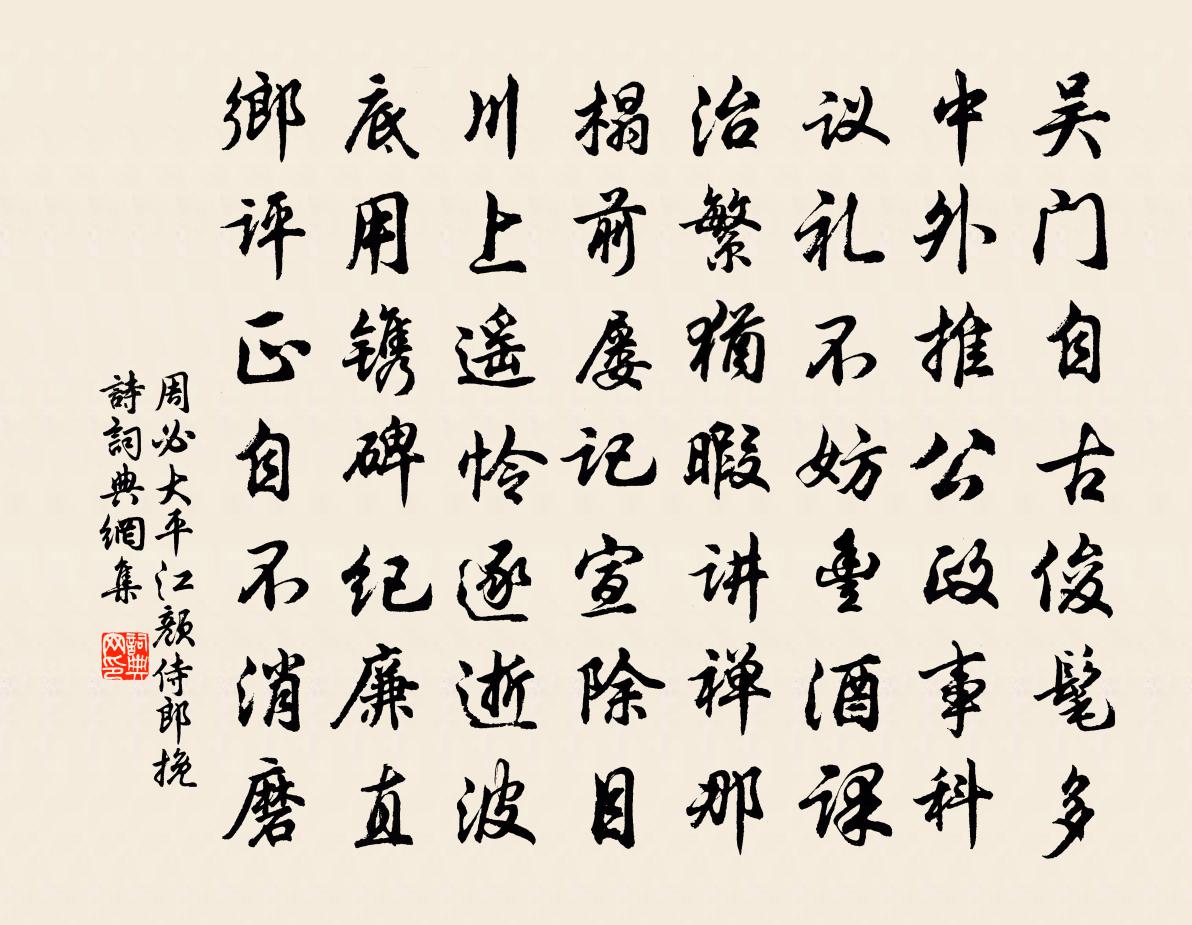 吴门自古俊髦多
中外推公政事科
议礼不妨丰酒课
治繁犹暇讲禅那
榻前屡记宣除目
川上遥怜逐逝波
底用镌碑纪廉直
鄉评正自不消磨
周必大平江颜侍郎挽
詩詞典網集
詞典网印